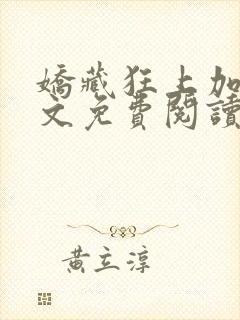 嬌藏狂上加
文免費閱讀
黃立淳